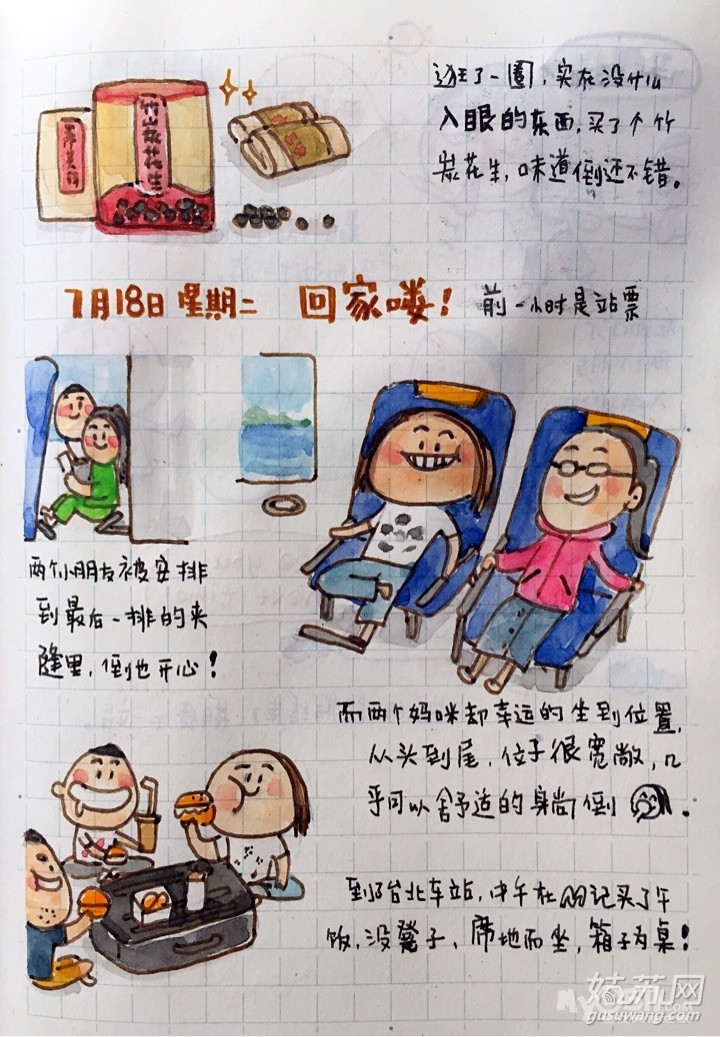 逛了一圈，实在没什么
入眼的东西，买了个竹
炭花生，味道倒还不错。
竹山炭花生
7月18日 星期二 回家喽！ 前一小时是站票
两个小朋友被安排
到最后一排的夹
缝里，倒也开心！
而两个妈咪却幸运的坐到位置，
从头到尾，位子很宽敞，几
乎可以舒适的身尚倒。
到了台北车站，中午在 记买了午
饭，没凳子，席地而坐，箱子为桌！
姑苏网
gusuwang.com